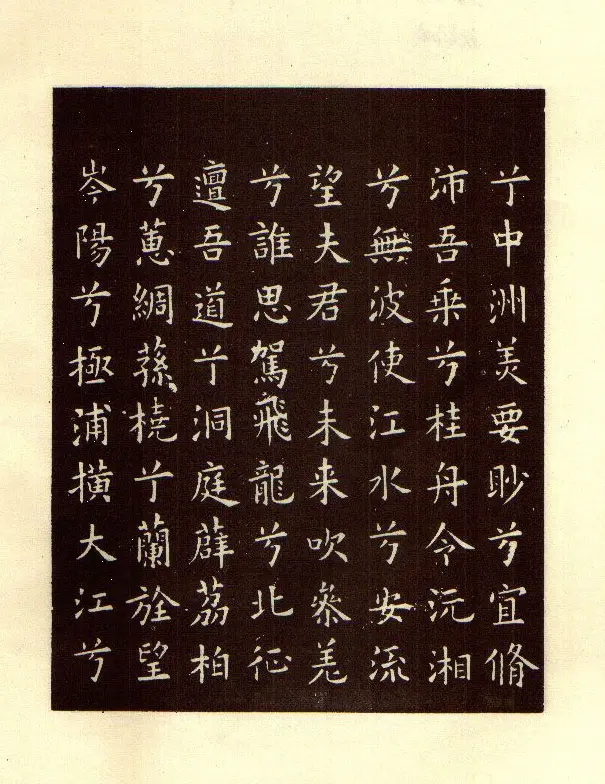 兮中洲美要眇兮宜脩
沛吾乗兮桂舟令沅湘
兮無波使江水兮安流
望夫君兮未来吹參差
兮誰思駕飛龍兮北征
邅吾道兮洞庭薜荔柏
兮蕙綢蓀橈兮蘭旌望
岑陽兮極浦横大江兮